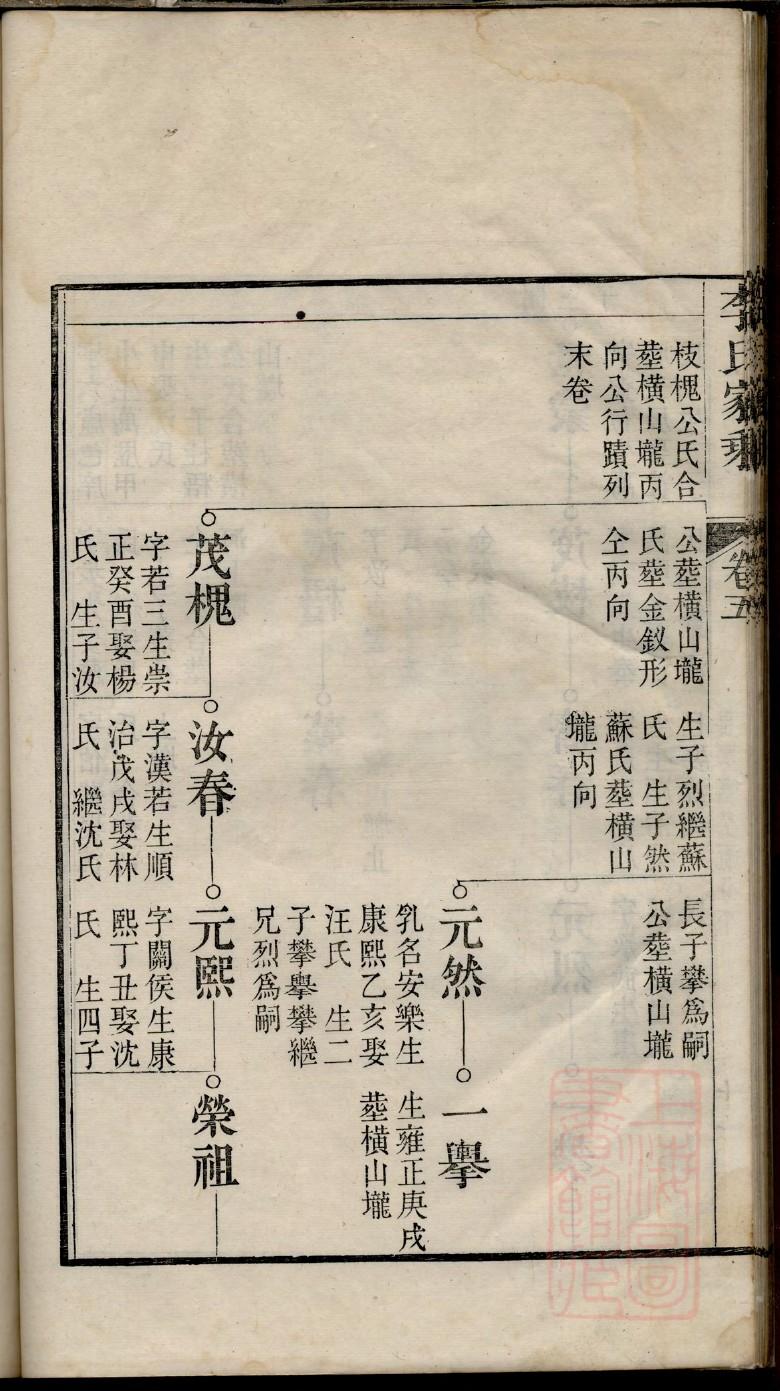 李氏家乘
卷五
枝槐公氏合
塟橫山壠丙
向公行蹟列
末卷
公塟橫山壠
氏塟金釵形
仝丙向
生子烈繼蘇
氏　生子然
蘇氏塟橫山
壠丙向
長子攀爲嗣
公塟橫山壠
元然
乳名安樂生
康熙乙亥娶
汪氏　生二
子攀舉攀繼
兄烈爲嗣
一舉
生雍正庚戌
塟橫山壠
茂槐
字若三生崇
正癸酉娶楊
氏　生子汝
汝春
字漢若生順
治戊戌娶林
氏　繼沈氏
元熙
字關侯生康
熙丁丑娶沈
氏　生四子
榮祖
上海圖
書館藏